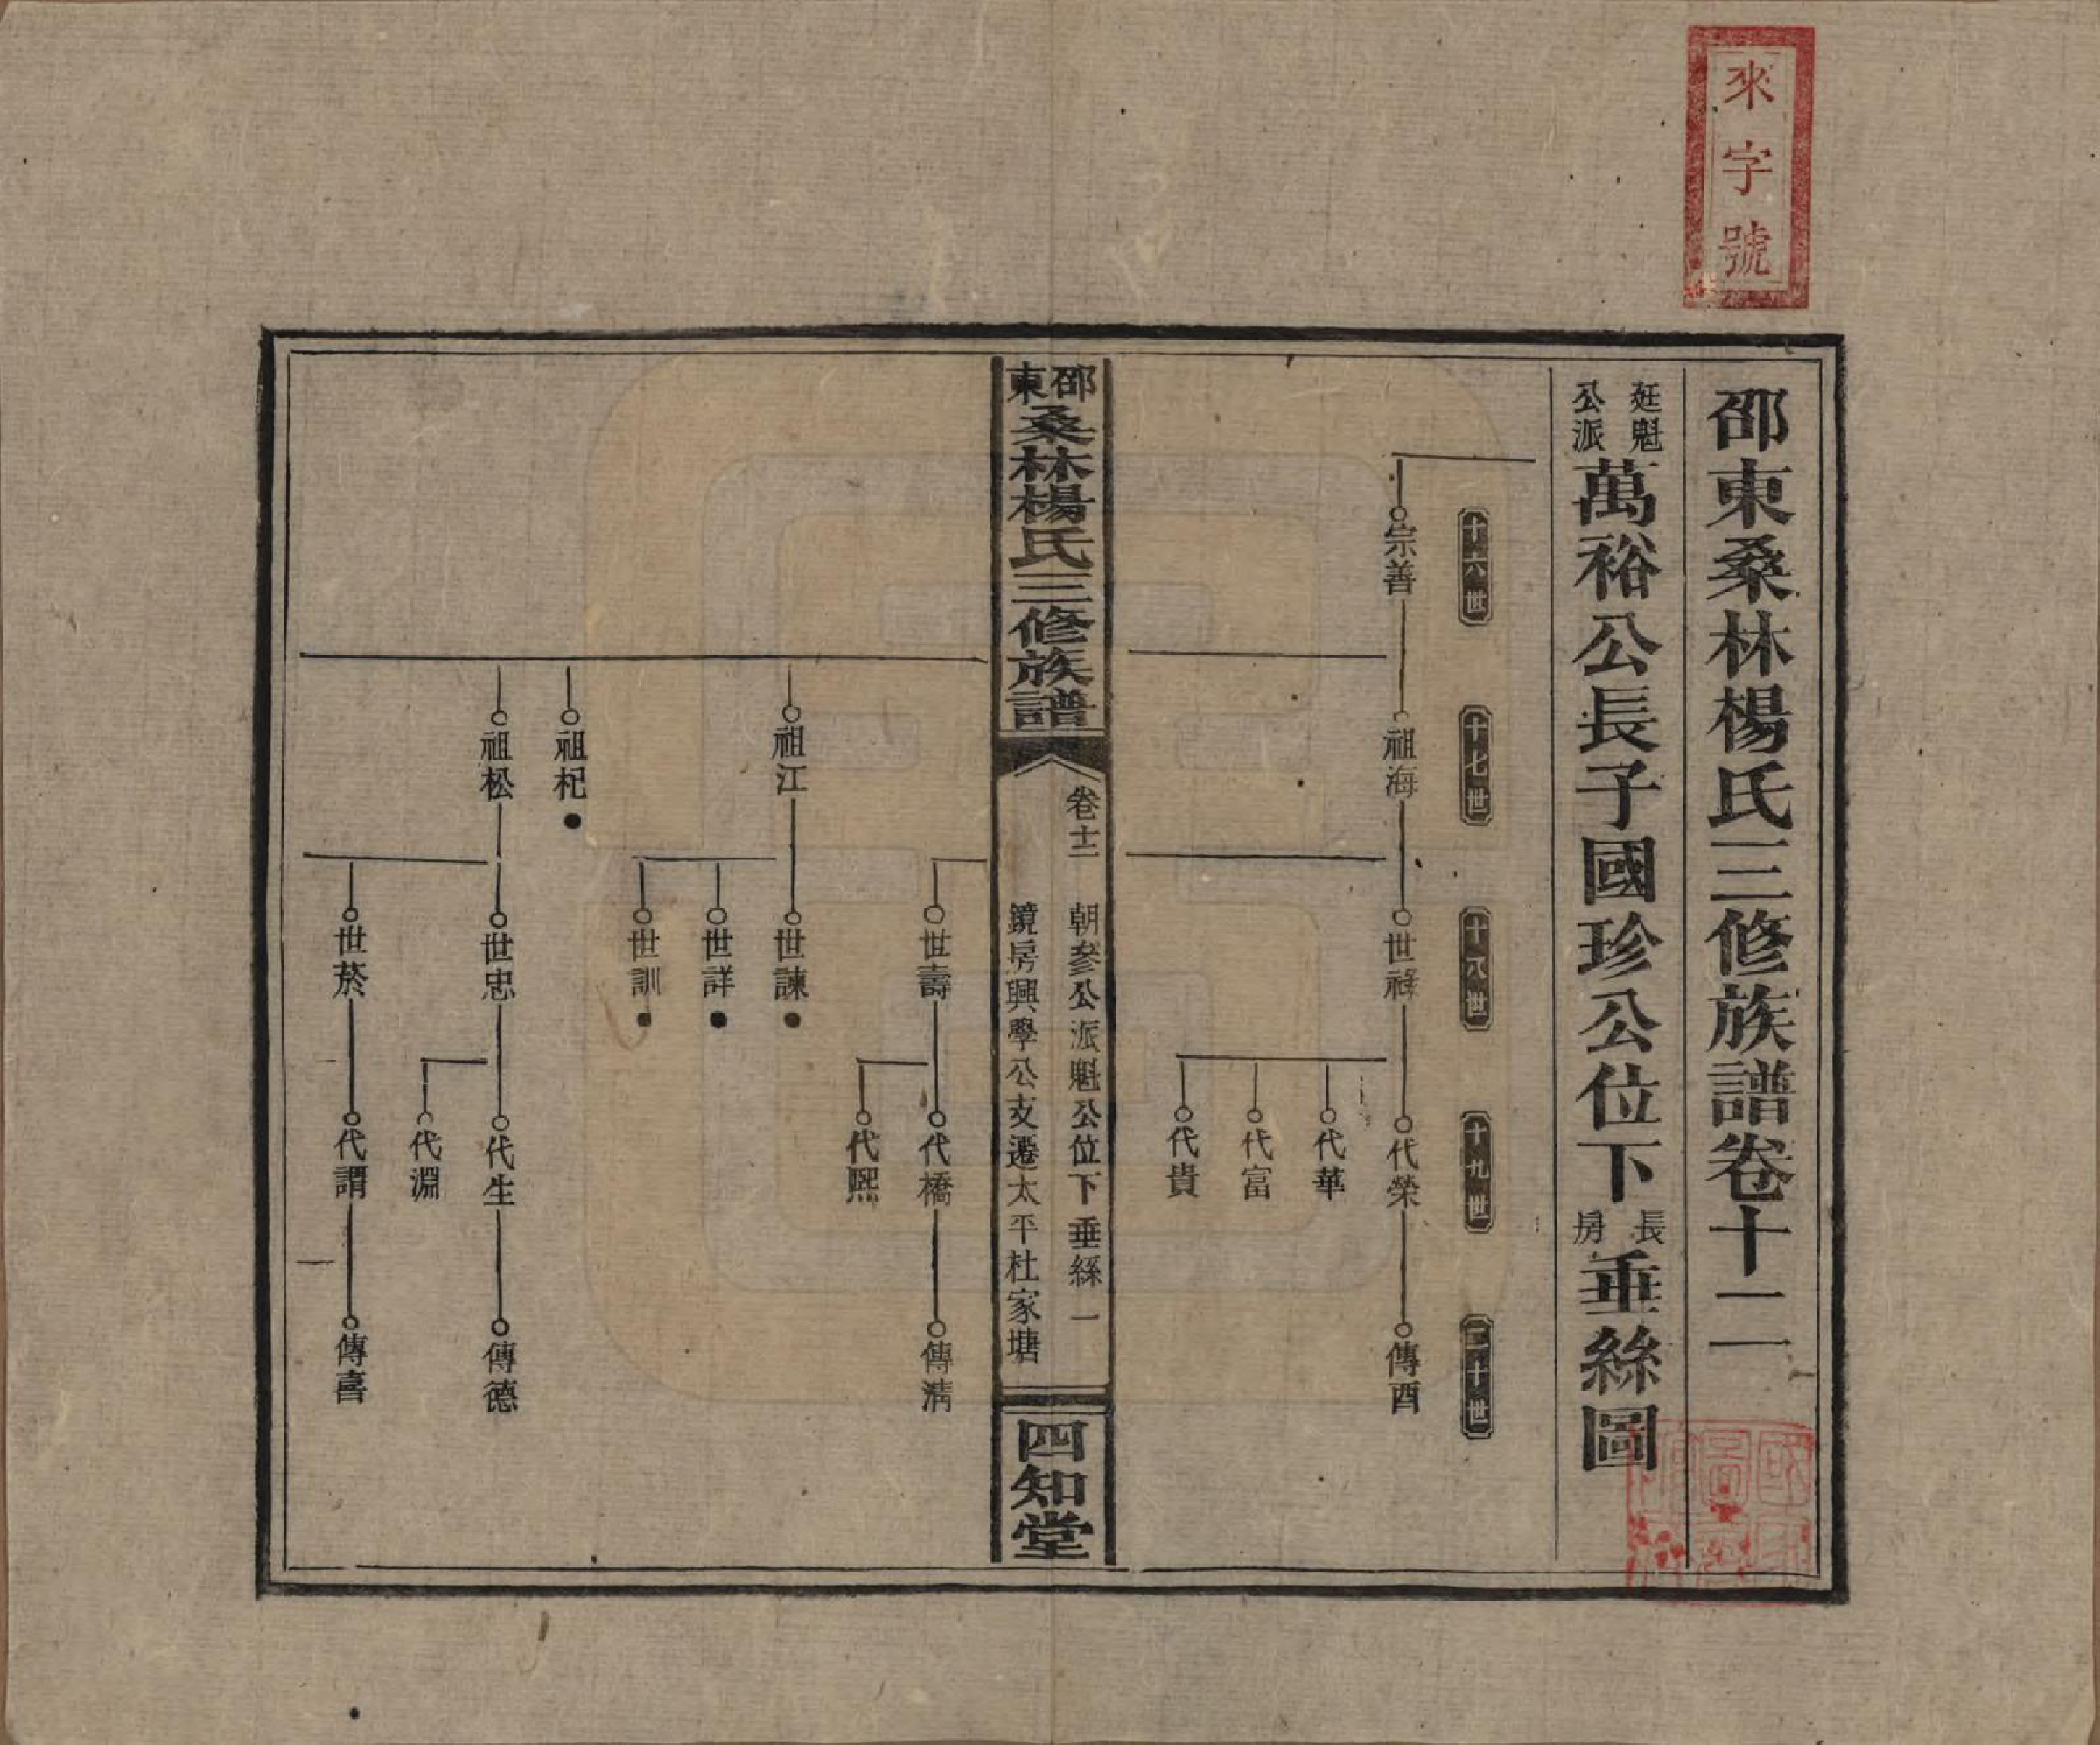 來字號
邵東桑林楊氏三修族譜卷十二
廷魁公派萬裕公長子國珍公位下長房垂絲圖
十六世
十七世
十八世
十九世
二十世
宗善
祖海
世祿
代榮
傳酉
代華
代富
代貴
邵東桑林楊氏三修族譜
卷十二
朝參公派魁公位下垂絲 一
鏡房興學公支遷太平杜家塘
四知堂
世壽
代橋
傳清
代熙
祖江
世諫
世詳
世訓
祖杞
祖松
世忠
代生
傳德
代淵
世菸
代謂
傳喜